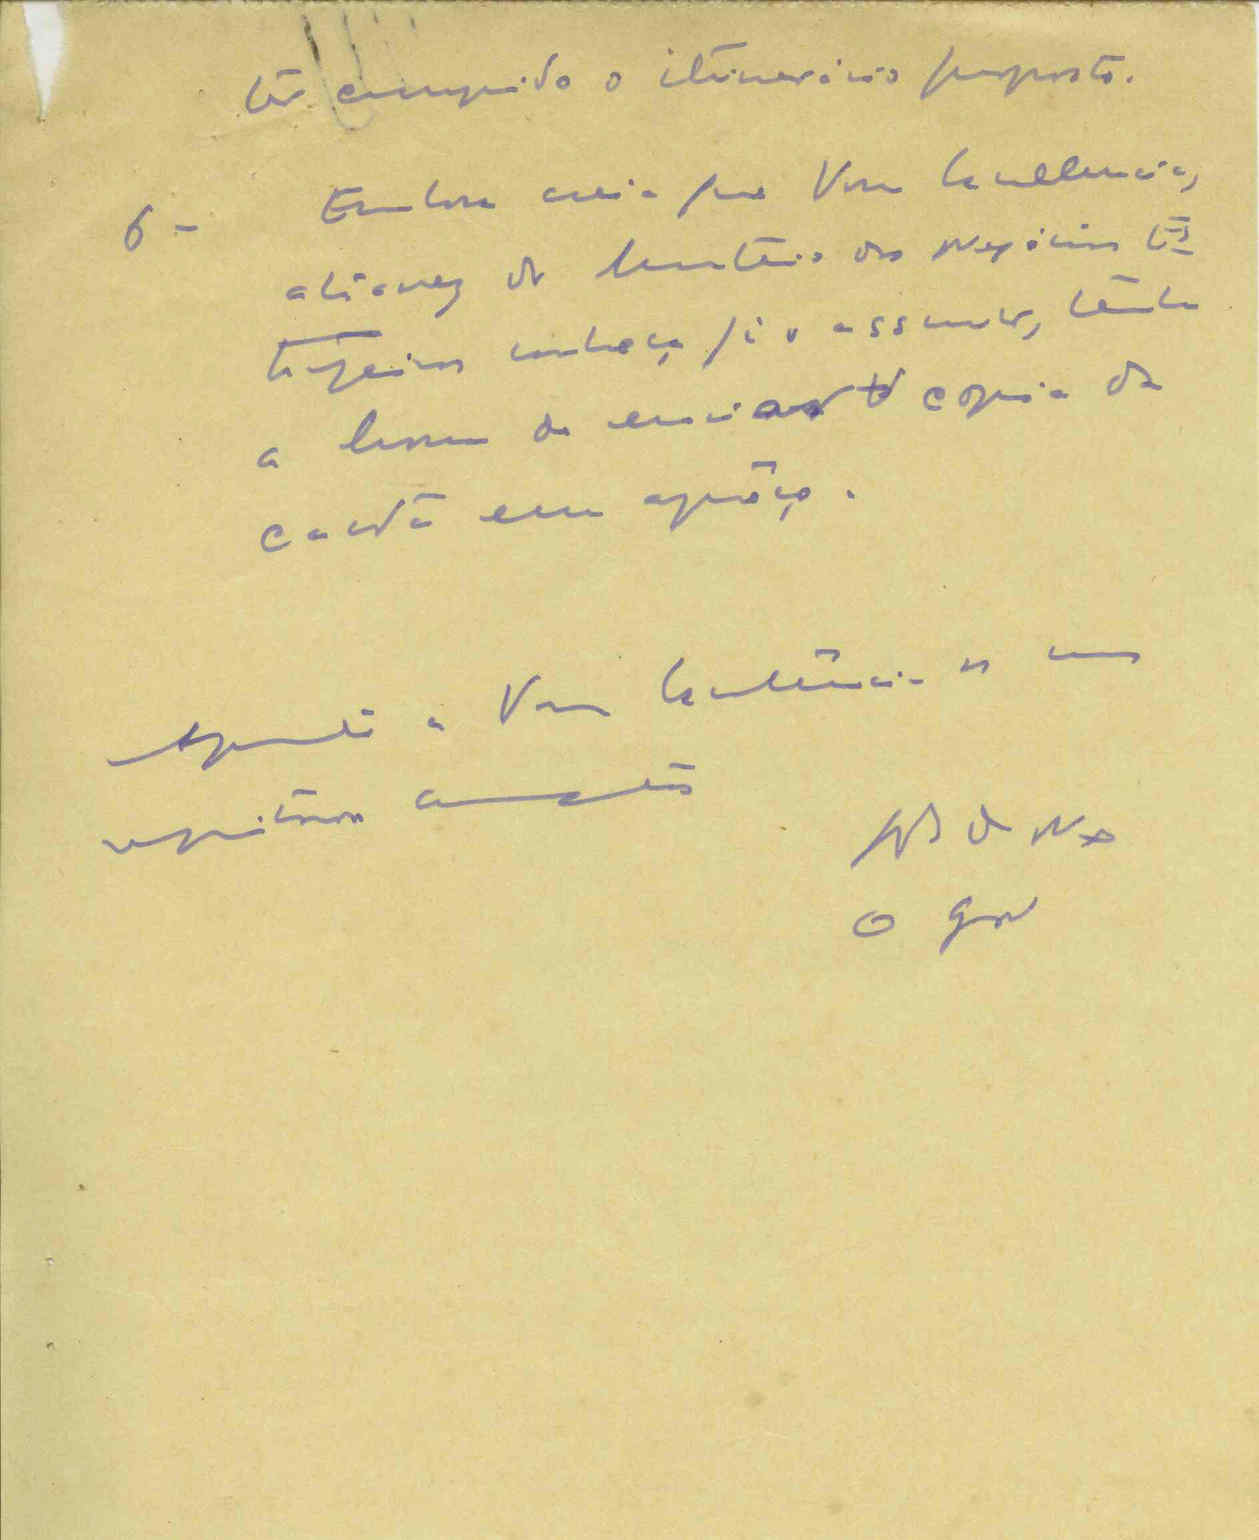 ter cumprido o itinerário proposto.
6 - Embora creia que Vossa Excellencia,
através do Ministério dos Negócios Es
trangeiros conheça já o assunto, tenho
a honra de enviar copia da
carta em apreço.
Apresento a Vossa Excelência os meus
respeitosos cumprimentos
O Gov